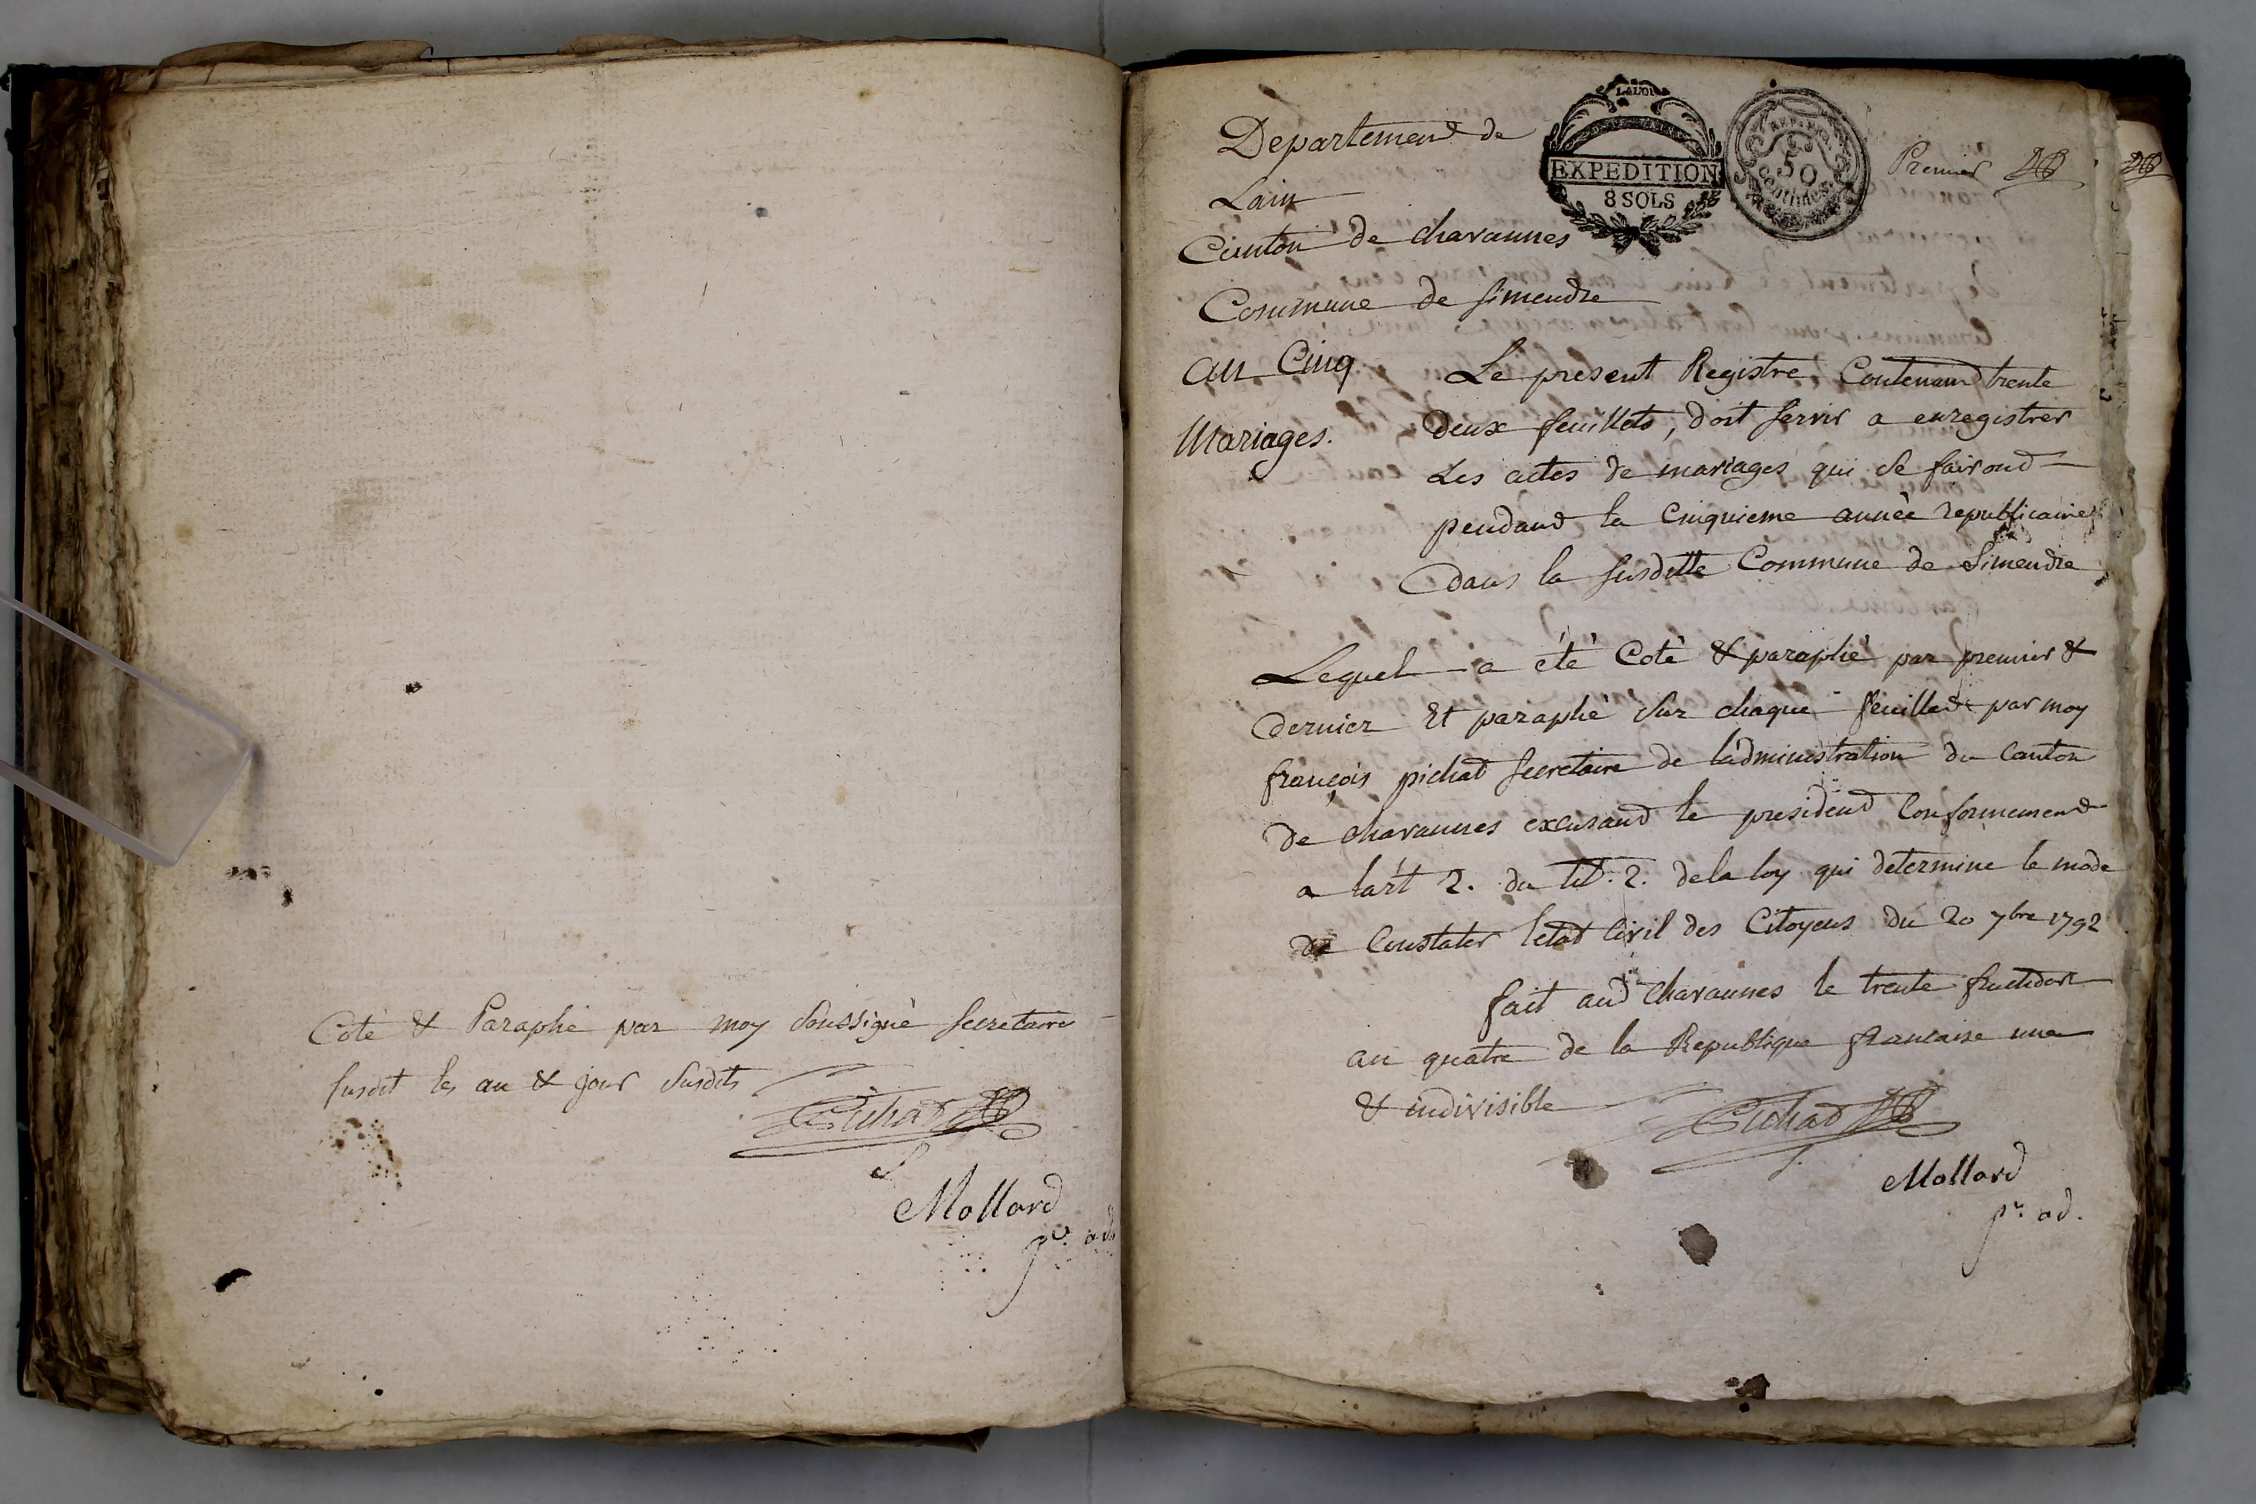 Coté & Paraphé par moy Soussignè Secretaire
susdit les an & jour Susdits
Pichat
Mollard
pr. ad
Departement de
Lain
Canton de chavannes
Commune de simendre
LA LOI
EXPEDITION
8 SOLS
REP. FRA.
50
centimes
Premier
an Cinq
Mariages.
Le present Registre, Contenant trente
deux feuillets, doit servir a enregistrer
Les actes de mariages qui se fairont
pendant la Cinquieme année republicaine
dans la susditte Commune de Simendre
Lequel a étè Cotè & paraphè par premier &
dernier Et paraphé sur chaque feuillet par moy
françois pichat secretaire de ladministration du Canton
de chavannes excusant le president Conformement
a lart 2. du tit. 2. de la loy qui determine le mode
de Constater letat Civil des Citoyens du 20 7bre 1792
fait aud chavannes le trente fructidor
an quatre de la Republique francaise une
& indivisible
Pichat
Mollard
pr. ad.